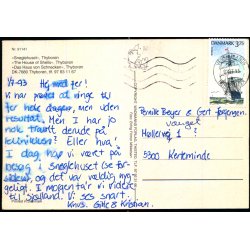 Nr. 91141
»Sneglehuset«, Thyborøn
»The House of Shells«, Thyborøn
»Das Haus von Schnecken«, Thyborøn
DK-7680 Thyborøn, tlf. 97 83 11 67
DANMARK 3.75
1/7-93 Hej med jer!
Vi har prøvet at ringe til
jer hele dagen, men uden
resultat. Men I har jo
nok travlt derude på
Eller hva'
I dag har vi været på
besøg i sneglehuset (se for-
siden) og det var vældig my-
geligt. I morgen tar vi videre
til Sjælland. Vi ses snart.
Knus. Gitte & Kristian.
Pernille Beyer & Gert Jørgensen
vænget
5300 Kerteminde